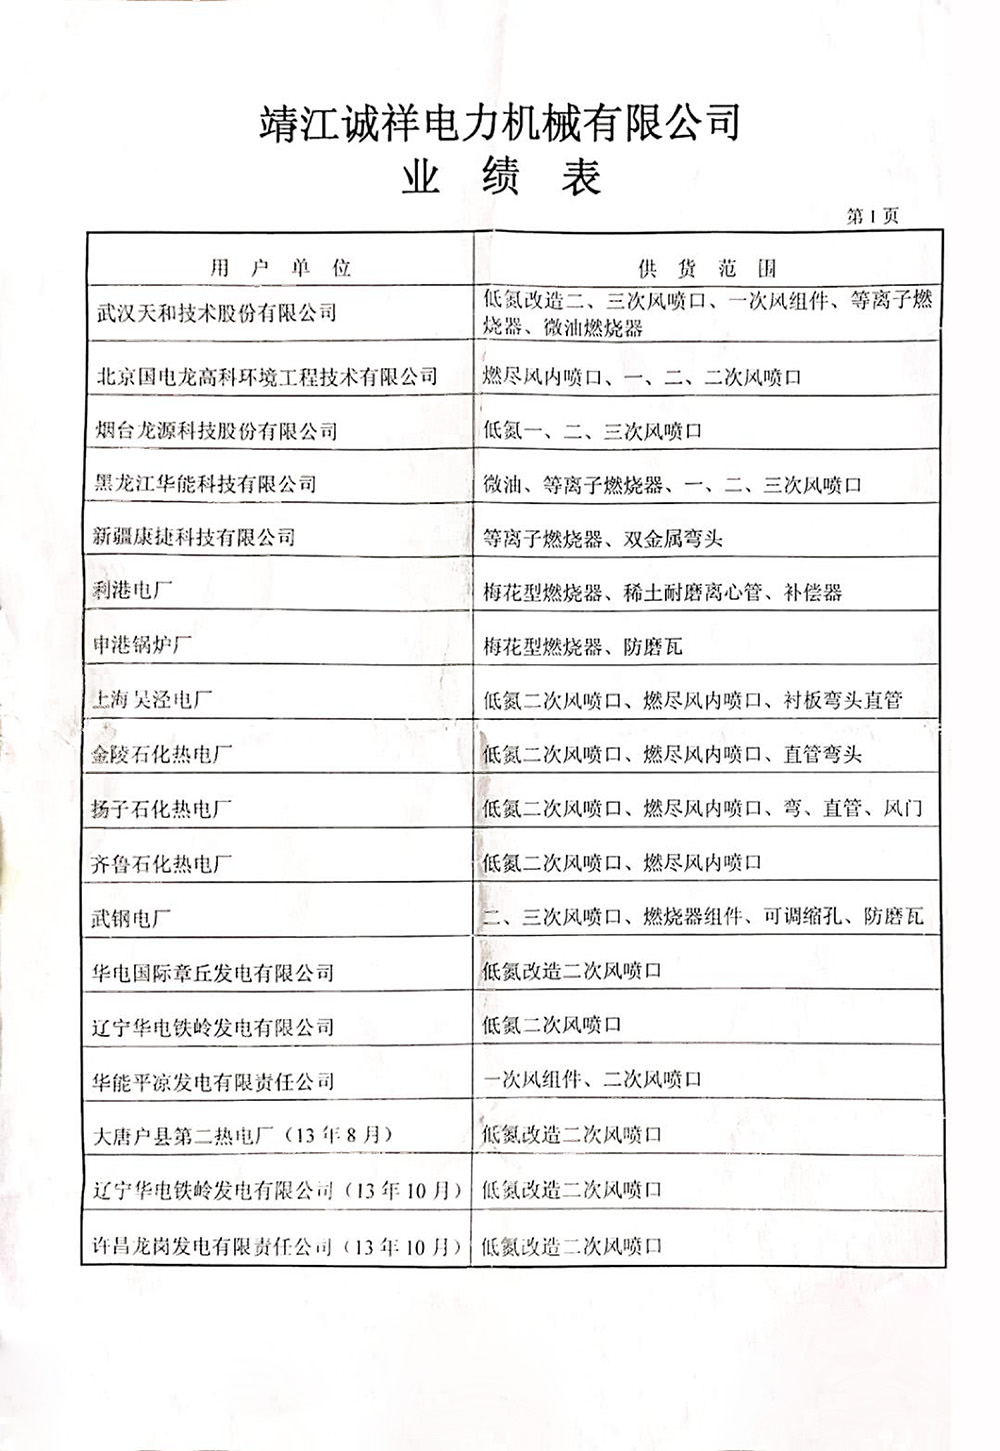 靖江诚祥电力机械有限公司
业 绩 表
第 1 页
用 户 单 位 供 货 范 围
武汉天和技术股份有限公司 低氮改造二、三次风喷口、一次风组件、等离子燃
烧器、微油燃烧器
北京国电龙高科环境工程技术有限公司 燃尽风内喷口、一、二、二次风喷口
烟台龙源科技股份有限公司 低氮一、二、三次风喷口
黑龙江华能科技有限公司 微油、等离子燃烧器、一、二、三次风喷口
新疆康捷科技有限公司 等离子燃烧器、双金属弯头
利港电厂 梅花型燃烧器、稀土耐磨离心管、补偿器
申港锅炉厂 梅花型燃烧器、防磨瓦
上海吴泾电厂 低氮二次风喷口、燃尽风内喷口、衬板弯头直管
金陵石化热电厂 低氮二次风喷口、燃尽风内喷口、直管弯头
扬子石化热电厂 低氮二次风喷口、燃尽风内喷口、弯、直管、风门
齐鲁石化热电厂 低氮二次风喷口、燃尽风内喷口
武钢电厂 二、三次风喷口、燃烧器组件、可调缩孔、防磨瓦
华电国际章丘发电有限公司 低氮改造二次风喷口
辽宁华电铁岭发电有限公司 低氮二次风喷口
华能平凉发电有限责任公司 一次风组件、二次风喷口
大唐户县第二热电厂（13 年 8 月） 低氮改造二次风喷口
辽宁华电铁岭发电有限公司（13 年 10 月） 低氮改造二次风喷口
许昌龙岗发电有限责任公司（13 年 10 月） 低氮改造二次风喷口